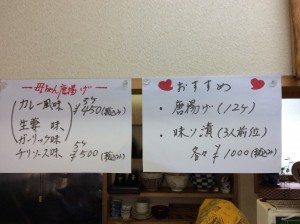 ー母ちゃん唐揚げー
カレー風味 5ヶ ¥450(税込み)
生姜 味
ガーリック味
チリソース味 5ヶ ¥500(税込み)
おすすめ
・唐揚げ(12ヶ)
・味り漬(3人前位)
各々 ¥1000(税込み)